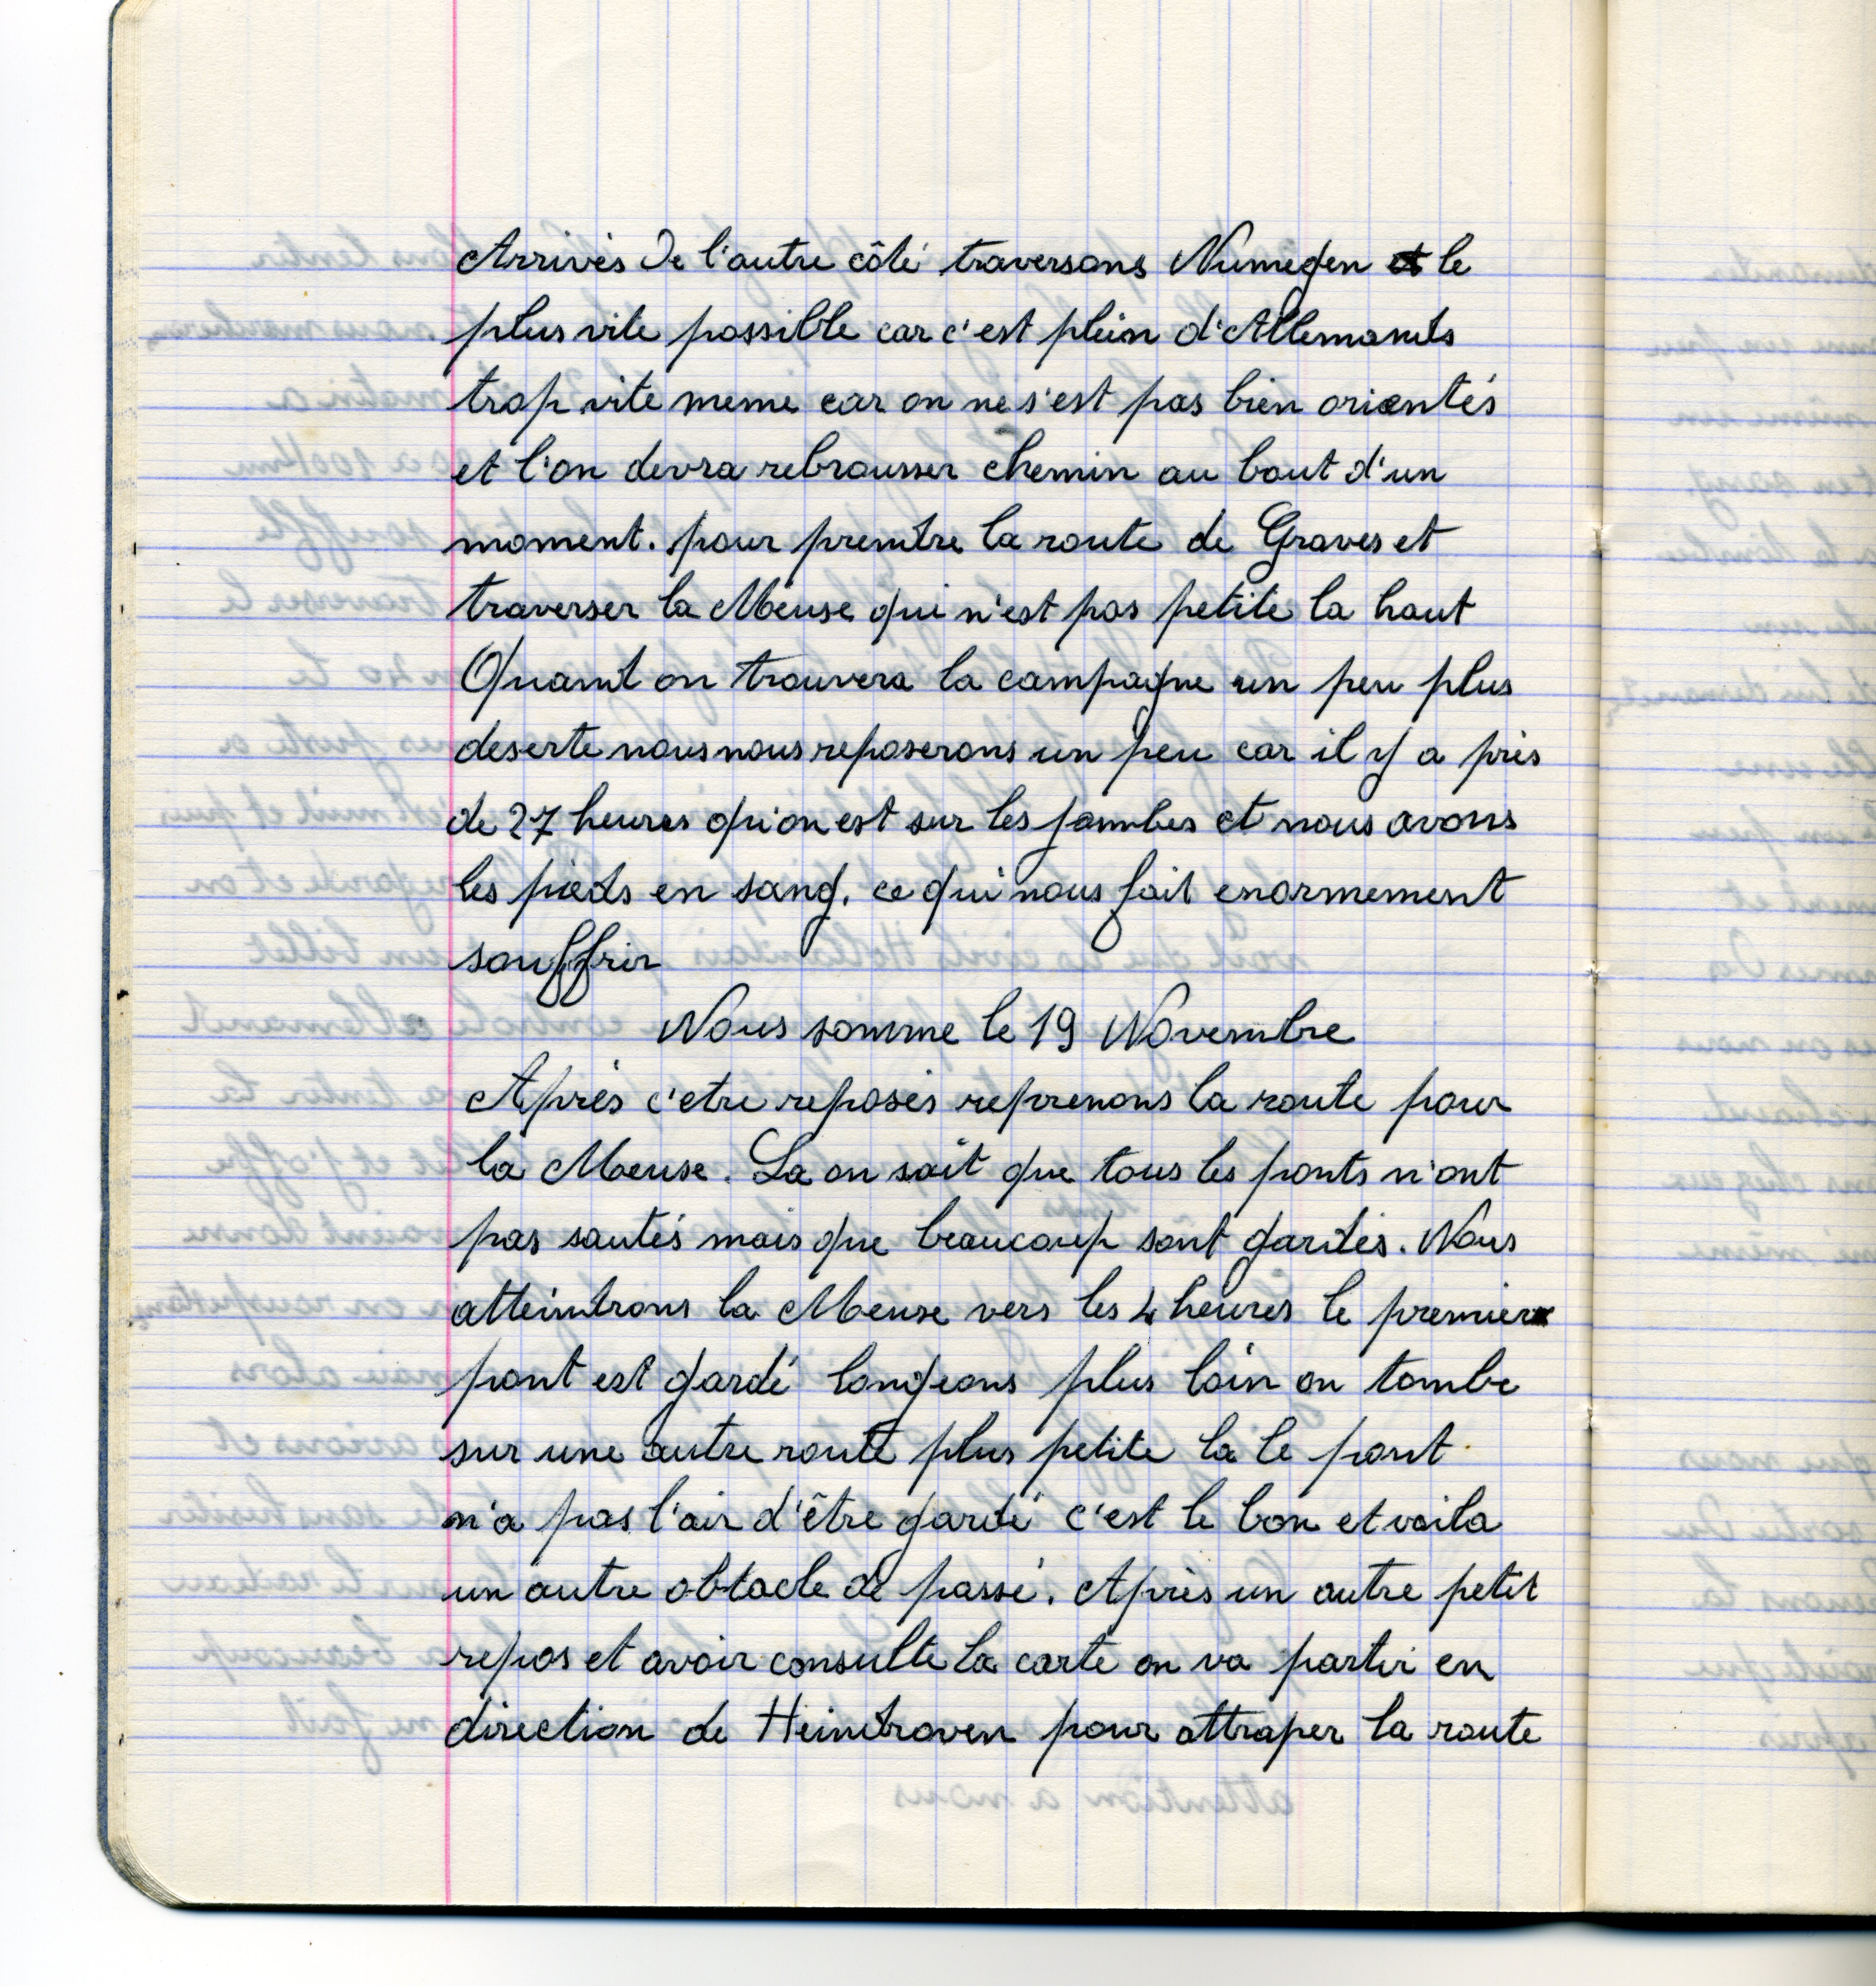 Arrivés de l'autre côté traversons Numegen et le
plus vite possible car c'est plein d'Allemands
trop vite meme car on ne s'est pas bien orientés
et l'on devra rebrousser chemin au bout d'un
moment. pour prendre la route de Graves et
traverser la Meuse qui n'est pas petite la haut
Quand on trouvera la campagne un peu plus
deserte nous nous reposerons un peu car il y a près
de 27 heures qu'on est sur les jambes et nous avons
les pieds en sang. ce qui nous fait enormement
souffrir
Nous somme le 19 Novembre
Après c'etre reposés reprenons la route pour
la Meuse. La on sait que tous les ponts n'ont
pas sautés mais que beaucoup sont gardés. Nous
atteindrons la Meuse vers les 4 heures le premier
pont est gardé longeons plus loin on tombe
sur une autre route plus petite la le pont
n'a pas l'air d'être gardé c'est le bon et voila
un autre obtacle de passé. Après un autre petit
repos et avoir consulte la carte on va partir en
direction de Heindroven pour attraper la route